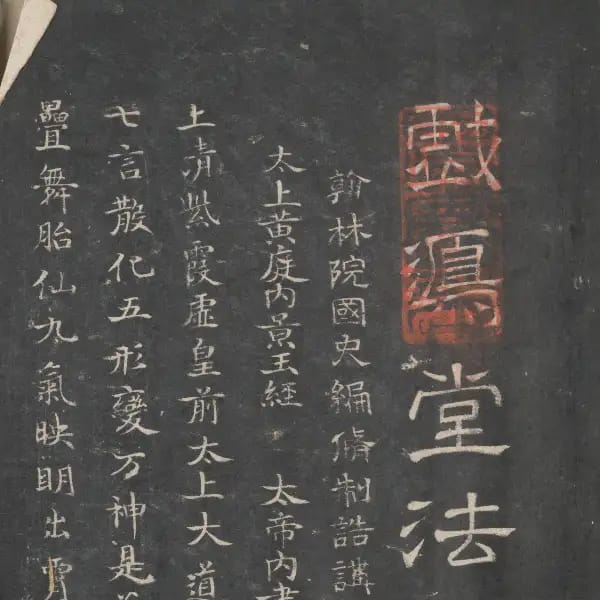 戲鴻堂法
翰林院國史編脩制誥講
太上黄庭内景玉經 太帝内
上清紫霞虚皇前太上大道
七言散化五形變万神是
疊舞胎仙九氣映明出霄